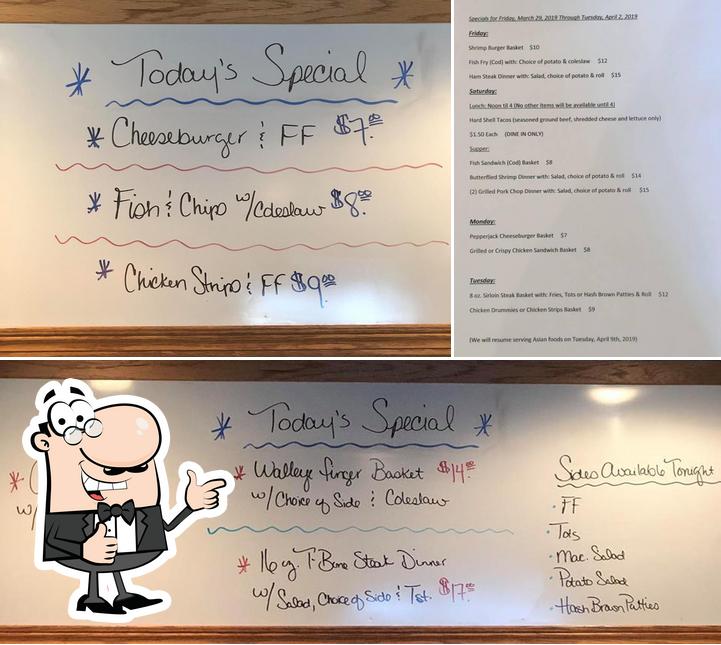 Today's Special
Cheeseburger & FF $7.00
Fish & Chips w/Coleslaw $8.00
Chicken Strips & FF $9.00
Specials for Friday, March 29, 2019 Through Tuesday, April 2, 2019
Friday:
Shrimp Burger Basket $10
Fish Fry (Cod) with: Choice of potato & coleslaw $12
Ham Steak Dinner with: Salad, choice of potato & roll $15
Saturday:
Lunch: Noon til 4 (No other items will be available until 4)
Hard Shell Tacos (seasoned ground beef, shredded cheese and lettuce only)
$1.50 Each (DINE IN ONLY)
Supper:
Fish Sandwich (Cod) Basket $8
Butterflied Shrimp Dinner with: Salad, choice of potato & roll $14
(2) Grilled Pork Chop Dinner with: Salad, choice of potato & roll $15
Monday:
Pepperjack Cheeseburger Basket $7
Grilled or Crispy Chicken Sandwich Basket $8
Tuesday:
8 oz. Sirloin Steak Basket with: Fries, Tots or Hash Brown Patties & Roll $12
Chicken Drummies or Chicken Strips Basket $9
(We will resume serving Asian foods on Tuesday, April 9th, 2019)
Today's Special
Walleye Finger Basket $14.00
w/Choice of Side & Coleslaw
16 oz. T-Bone Steak Dinner
w/Salad, Choice of Side & Tst. $17.00
Sides Available Tonight
FF
Tots
Mac. Salad
Potato Salad
Hash Brown Patties